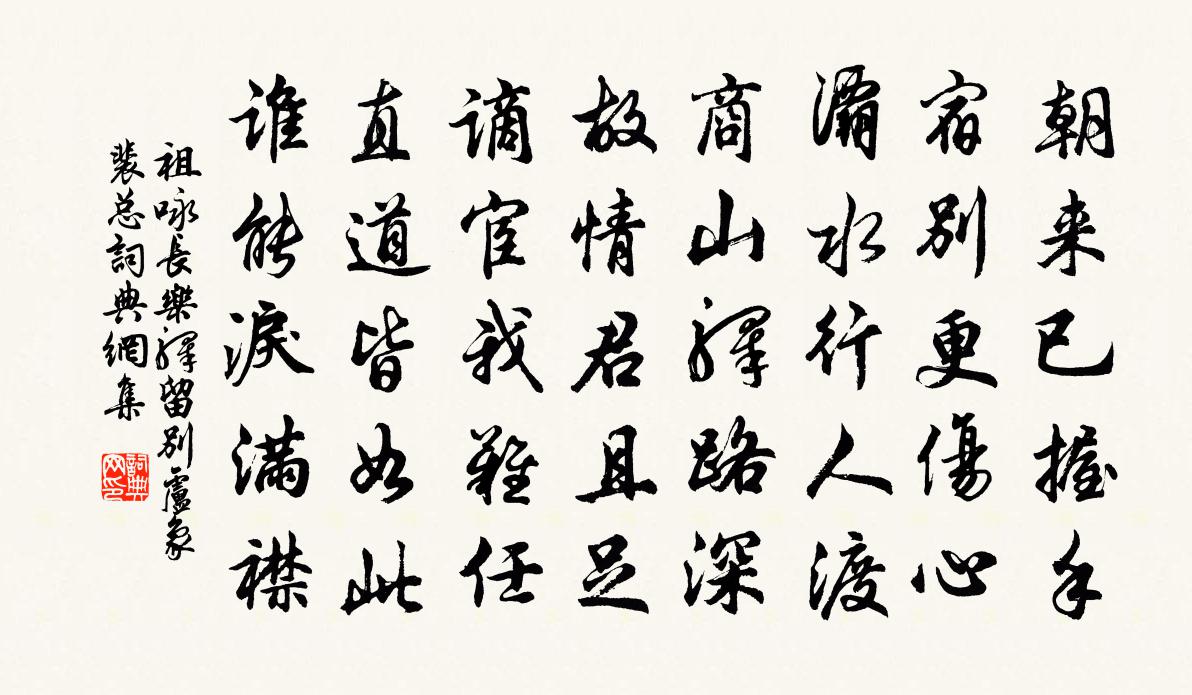 朝来已握手
宿別更傷心
灞水行人渡
商山驛路深
故情君且足
謫宦我難任
直道皆如此
誰能淚滿襟
祖咏長樂驛留別盧象
裴总詞典網集
詞典網印